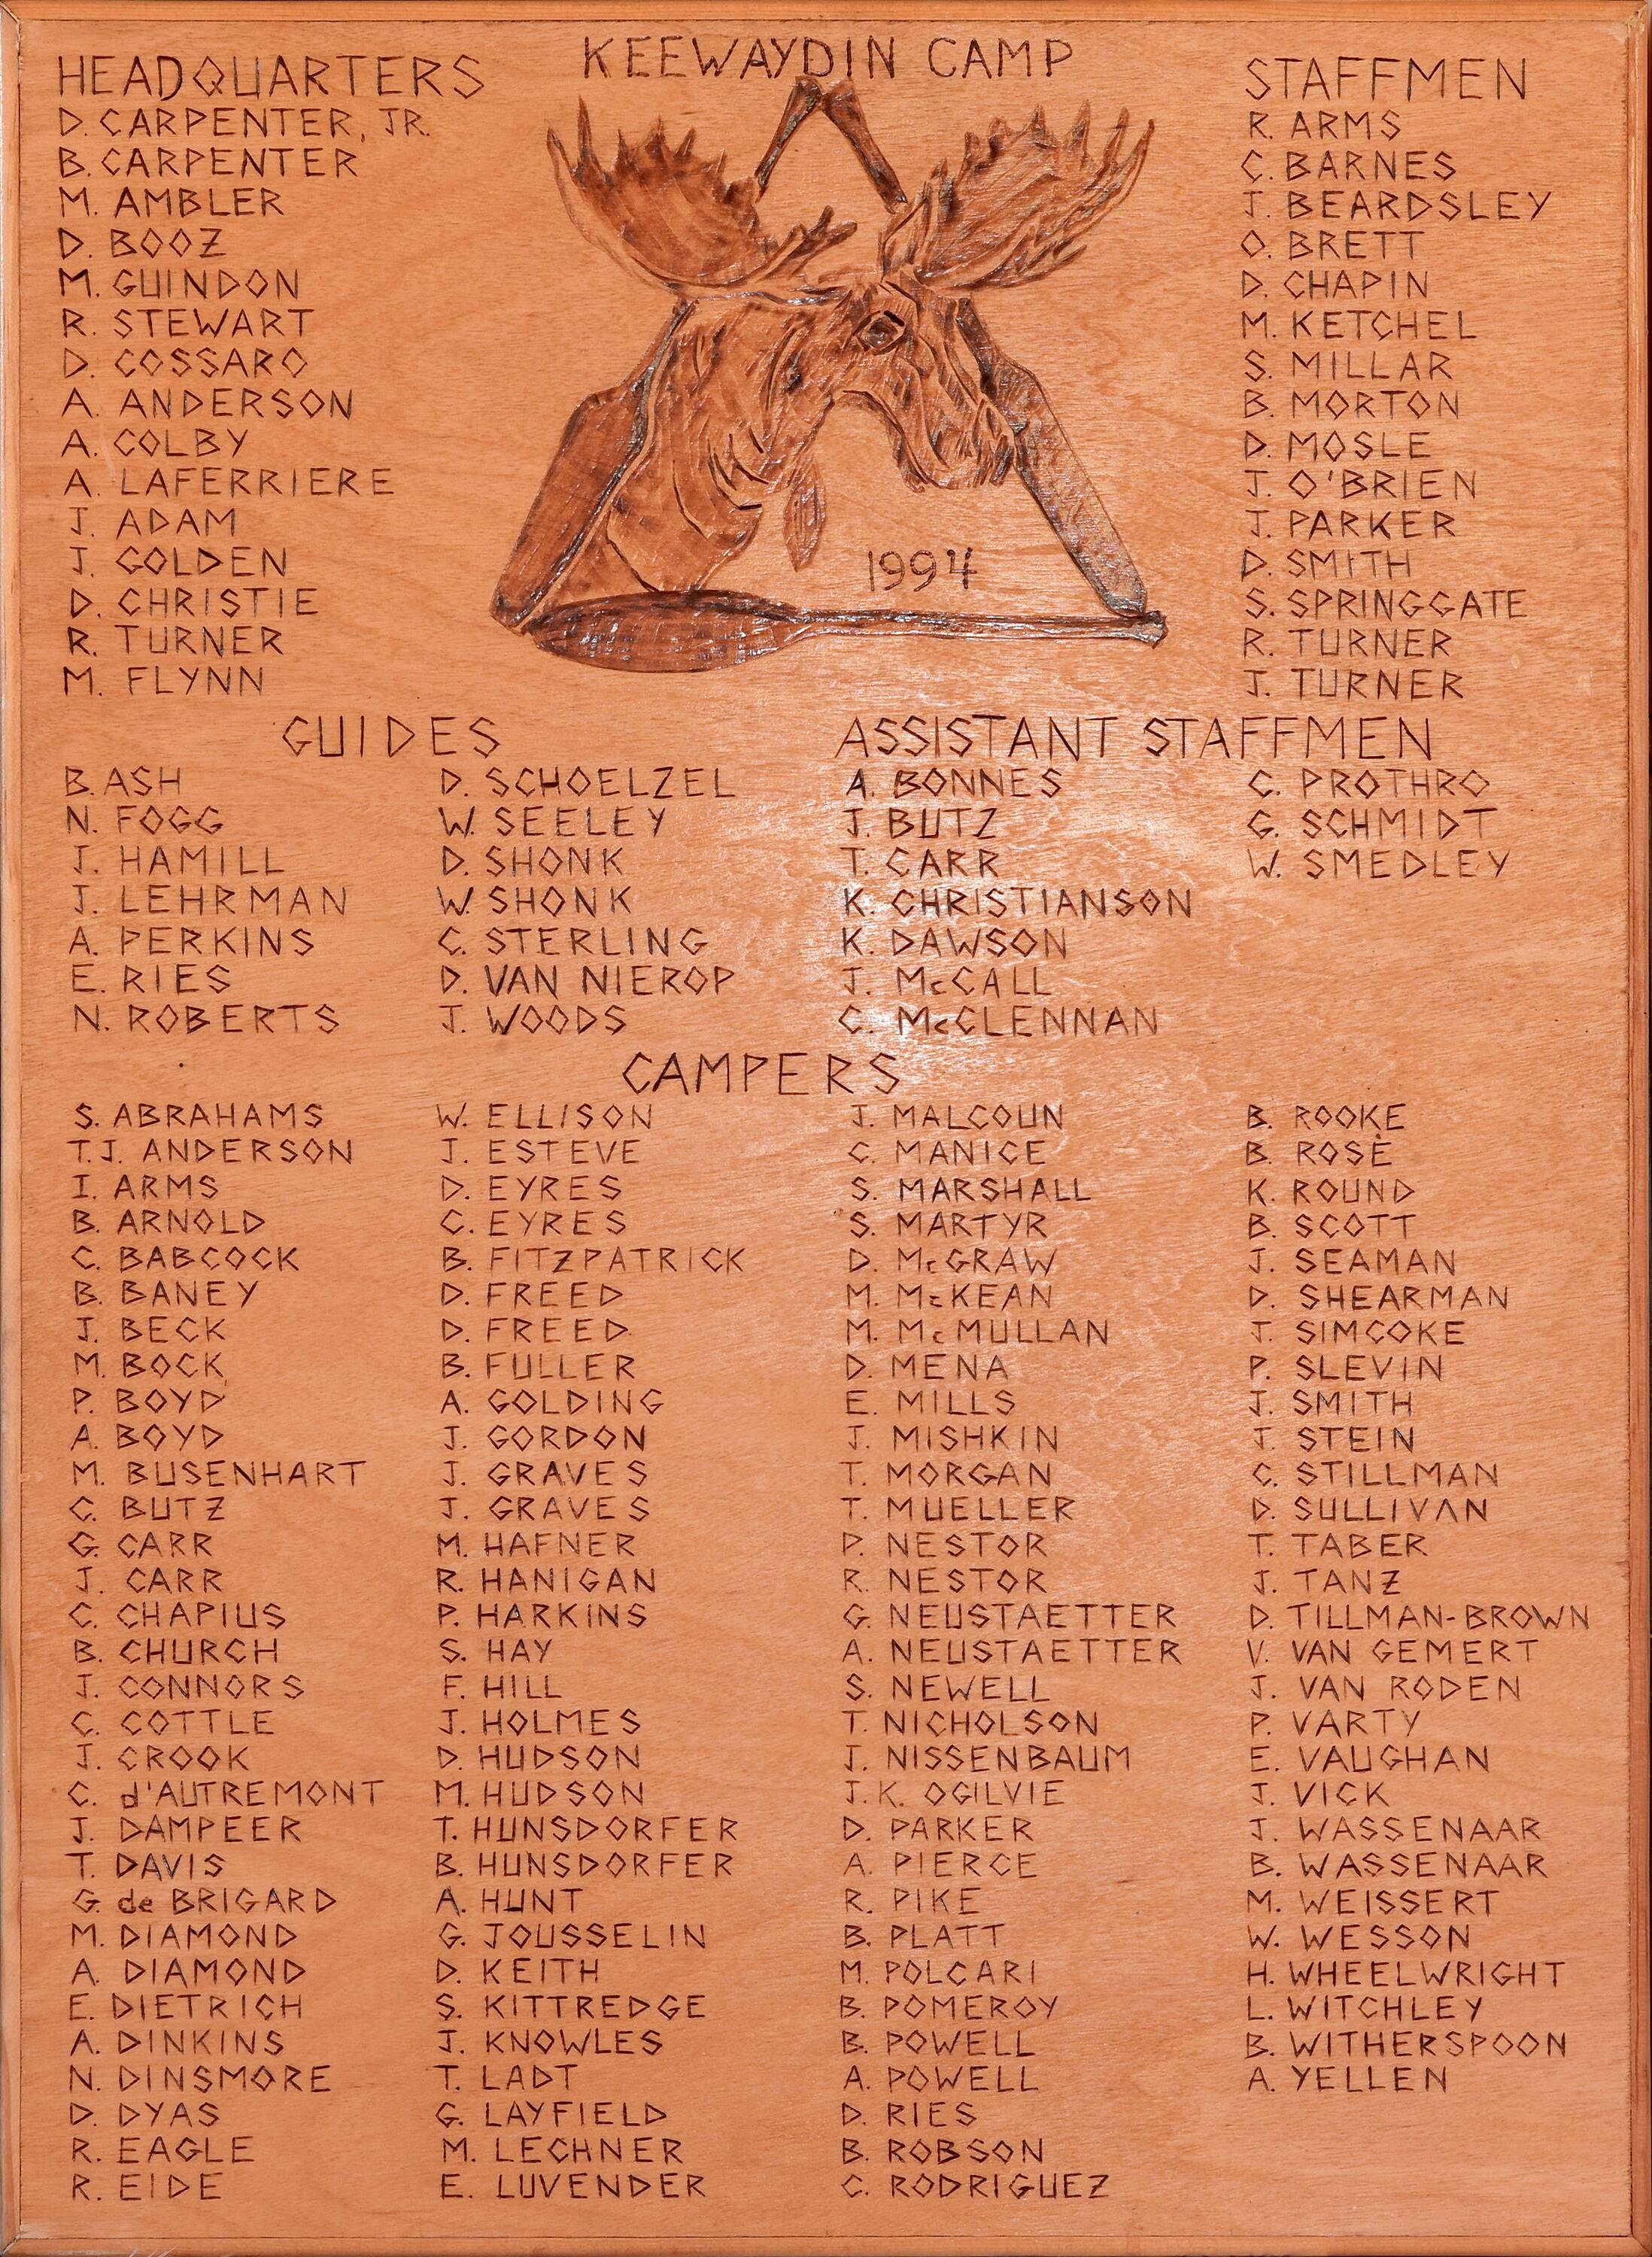 KEEWAYDIN CAMP
HEADQUARTERS
D. CARPENTER, JR.
B. CARPENTER
M. AMBLER
D. BOOZ
M. GUINDON
R. STEWART
D. COSSARO
A. ANDERSON
A. COLBY
A. LAFERRIERE
J. ADAM
J. GOLDEN
D. CHRISTIE
R. TURNER
M. FLYNN
1994
STAFFMEN
R. ARMS
C. BARNES
J. BEARDSLEY
O. BRETT
D. CHAPIN
M. KETCHEL
S. MILLAR
B. MORTON
D. MOSLE
J. O'BRIEN
J. PARKER
D. SMITH
S. SPRINGGATE
R. TURNER
J. TURNER
GUIDES
B. ASH
N. FOGG
J. HAMILL
J. LEHRMAN
A. PERKINS
E. RIES
N. ROBERTS
D. SCHOELZEL
W. SEELEY
D. SHONK
W. SHONK
C. STERLING
D. VAN NIEROP
J. WOODS
ASSISTANT STAFFMEN
A. BONNES
J. BUTZ
T. CARR
K. CHRISTIANSON
K. DAWSON
J. McCALL
C. McCLENNAN
C. PROTHRO
G. SCHMIDT
W. SMEDLEY
CAMPERS
S. ABRAHAMS
T.J. ANDERSON
I. ARMS
B. ARNOLD
C. BABCOCK
B. BANEY
J. BECK
M. BOCK
P. BOYD
A. BOYD
M. BUSENHART
C. BUTZ
G. CARR
J. CARR
C. CHAPIUS
B. CHURCH
J. CONNORS
C. COTTLE
J. CROOK
C. d'AUTREMONT
J. DAMPEER
T. DAVIS
G. de BRIGARD
M. DIAMOND
A. DIAMOND
E. DIETRICH
A. DINKINS
N. DINSMORE
D. DYAS
R. EAGLE
R. EIDE
W. ELLISON
J. ESTEVE
D. EYRES
C. EYRES
B. FITZPATRICK
D. FREED
D. FREED
B. FULLER
A. GOLDING
J. GORDON
J. GRAVES
J. GRAVES
M. HAFNER
R. HANIGAN
P. HARKINS
S. HAY
F. HILL
J. HOLMES
D. HUDSON
M. HUDSON
T. HUNSDORFER
B. HUNSDORFER
A. HUNT
G. JOUSSELIN
D. KEITH
S. KITTREDGE
J. KNOWLES
T. LADT
G. LAYFIELD
M. LECHNER
E. LUVENDER
J. MALCOUN
C. MANICE
S. MARSHALL
S. MARTYR
D. McGRAW
M. McKEAN
M. McMULLAN
D. MENA
E. MILLS
J. MISHKIN
T. MORGAN
T. MUELLER
P. NESTOR
R. NESTOR
G. NEUSTAETTER
A. NEUSTAETTER
S. NEWELL
T. NICHOLSON
J. NISSENBAUM
J.K. OGILVIE
D. PARKER
A. PIERCE
R. PIKE
B. PLATT
M. POLCARI
B. POMEROY
B. POWELL
A. POWELL
D. RIES
B. ROBSON
C. RODRIGUEZ
B. ROOKE
B. ROSE
K. ROUND
B. SCOTT
J. SEAMAN
D. SHEARMAN
J. SIMCOKE
P. SLEVIN
J. SMITH
J. STEIN
C. STILLMAN
D. SULLIVAN
T. TABER
J. TANZ
D. TILLMAN-BROWN
V. VAN GEMERT
J. VAN RODEN
P. VARTY
E. VAUGHAN
J. VICK
J. WASSENAAR
B. WASSENAAR
M. WEISSERT
W. WESSON
H. WHEELWRIGHT
L. WITCHLEY
B. WITHERSPOON
A. YELLEN